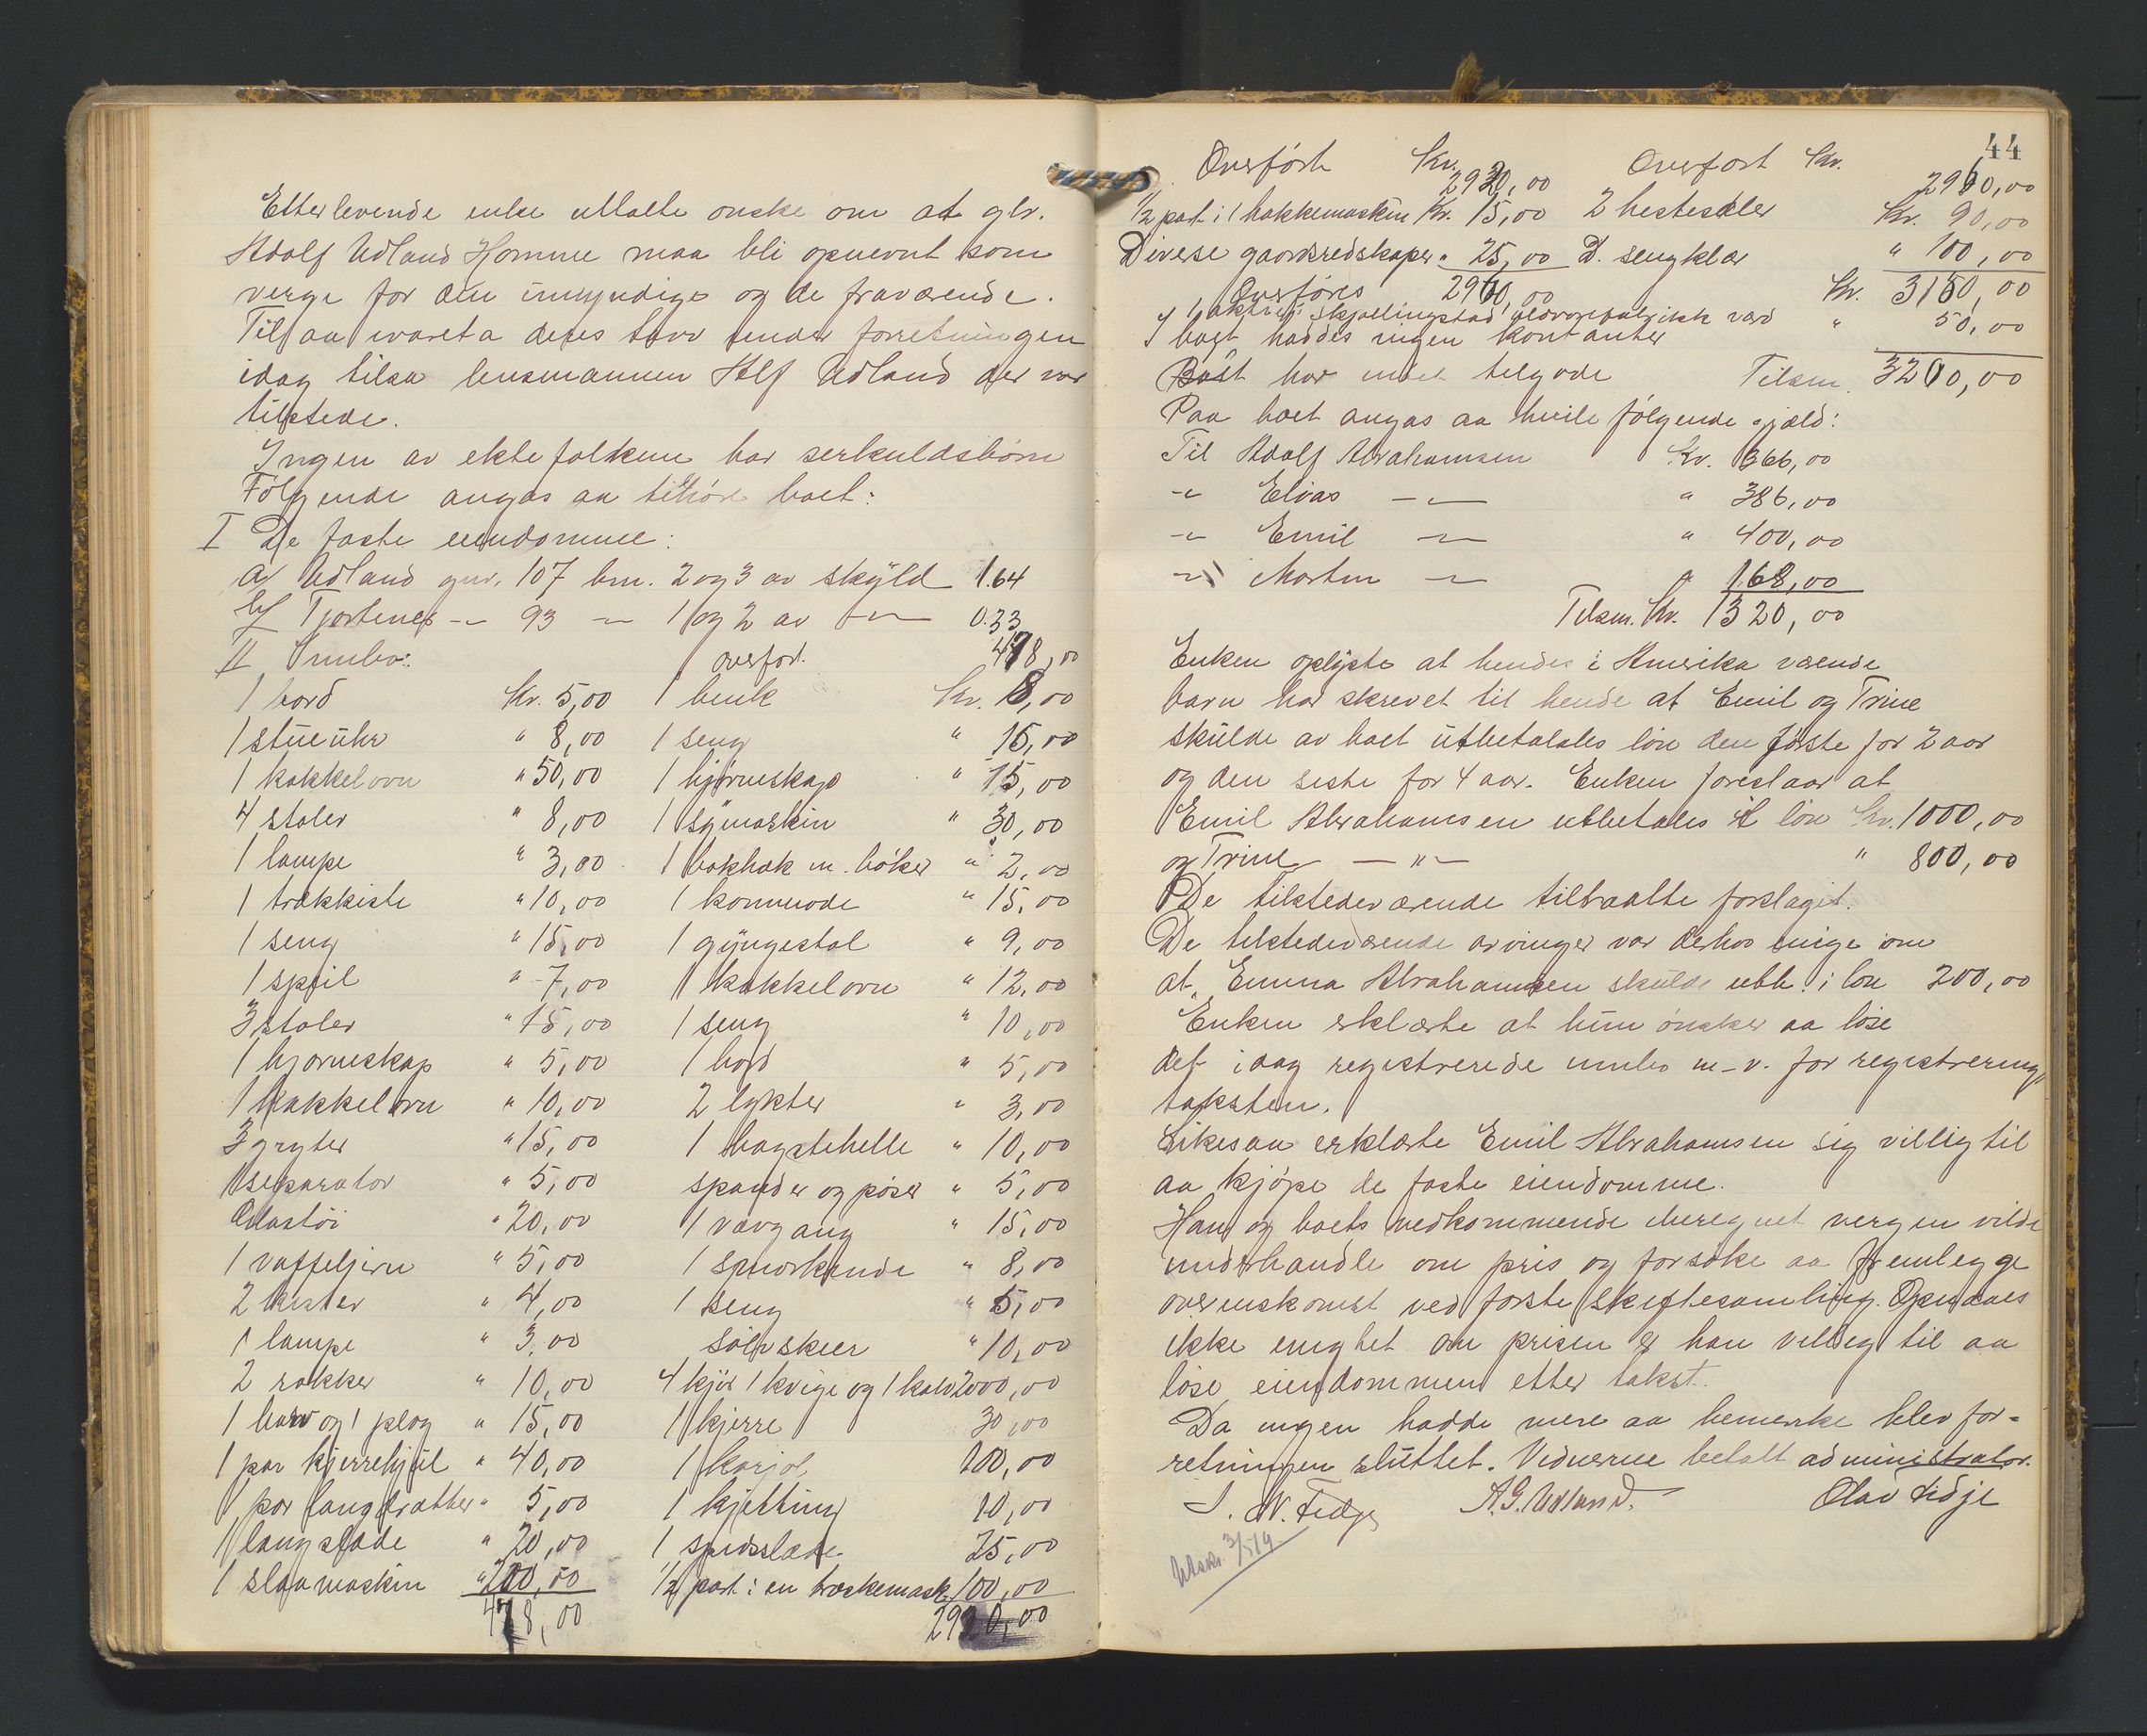 Etterlevende enke uttalte ønske om at gbr.
Adolf Udland Homme maa bli opnevnt som
verge for den umyndige og de fraværende.
Til aa ivareta deres tarv under forretningen
idag tilsa lensmannen Alf Udland der var
tilstede.
Ingen av ektefolkene har serkuldsbørn
Følgende angas aa tilhøre boet:
I De faste eiendomme:
a/ Udland gnr. 107 bnr. 2 og 3 av skyld 1.64
b/ Tjørtenes -"- 93 -"- 1 og 2 av -"- 0.33
II Innbo:
1 bord Kr. 5,00
1 stueuhr " 8,00
1 kakkelovn " 50,00
4 stoler " 8,00
1 lampe " 3,00
1 trækkiste " 10,00
1 seng " 15,00
1 speil " 7,00
3 stoler " 15,00
1 hjørneskap " 5,00
1 kakkelovn " 10,00
3 gryter " 15,00
1 separator " 5,00
Glastøi " 20,00
1 vaffeljern " 5,00
2 kister " 4,00
1 lampe " 3,00
2 rokker " 10,00
1 harv og 1 plog " 15,00
1 par kjerrehjul " 40,00
1 par langdratter " 5,00
1 langslæde " 20,00
1 slaamaskin " 200,00
478,00
overfør. 478,00
1 benk Kr. 8,00
1 seng " 15,00
1 hjørneskap " 15,00
1 symaskin " 30,00
1 bokhak m. bøker " 2,00
1 kommode " 15,00
1 gyngestol " 9,00
1 kakkelovn " 12,00
1 seng " 10,00
1 bord " 5,00
2 lykter " 3,00
1 bagstehelle " 10,00
spander og pøser " 5,00
1 vævgang " 15,00
1 smørkinde " 8,00
1 seng " 5,00
sølvskeer " 10,00
4 kjør 1 kvige og 1 kalv 2000,00
1 kjerre 30,00
1 karjol 100,00
1 kjetting 10,00
1 spidsslæde 25,00
1/2 part i en træskemask. 100,00
2920,00
44
Overført Kr. 2920,00
1/2 part i 1 hakkemaskin Kr. 15,00
Diverse gaardsredskaper " 25,00
Overføres 2960,00
Overført Kr. 2960,00
2 hesteseler Kr. 90,00
D. sengklær " 100,00
Kr. 3150,00
1 aktie i Skjollingstad værd " 50,00
I boet haddes ingen kontanter
Boet har intet tilgode Tilsm. 3200,00
Paa boet angas aa hvile følgende gjæld:
Til Adolf Abrahamsen Kr. 366,00
-"- Elias -"- " 386,00
-"- Emil -"- " 400,00
-"- Morten -"- " 168,00
Tilsm. Kr. 1320,00
Enken oplyste at hendes i Amerika værende
barn har skrevet til hende at Emil og Trine
skulde av boet utbetalales løn den første for 2 aar
og den siste for 4 aar. Enken foreslaar at
Emil Abrahamsen utbetales i løn Kr. 1000,00
og Trine -"- " 800,00
De tilstedeværende tiltraadte forslaget.
De tilstedeværende arvinger var derhos enige om
at Emma Abrahamsen skulde utb. i løn 200,00
Enken erklærte at hun ønsker aa løse
det idag registrerede innbo m.v. for registrerings
taksten.
Likesaa erklærte Emil Abrahamsen sig villig til
aa kjøpe de faste eiendomme.
Han og boets vedkommende iberegnet vergen vilde
underhandle om pris og forsøke aa fremlegge
overenskomst ved første skiftesamling. Opnaaes
ikke enighet om prisen er han villig til aa
løse eiendommen etter takst.
Da ingen hadde mere aa bemerke blev for-
retningen sluttet. Vidnerne betalt administrator.
S. N. Fedje A. G. Udland. Olav Fedje
Utskr. 3/5 19